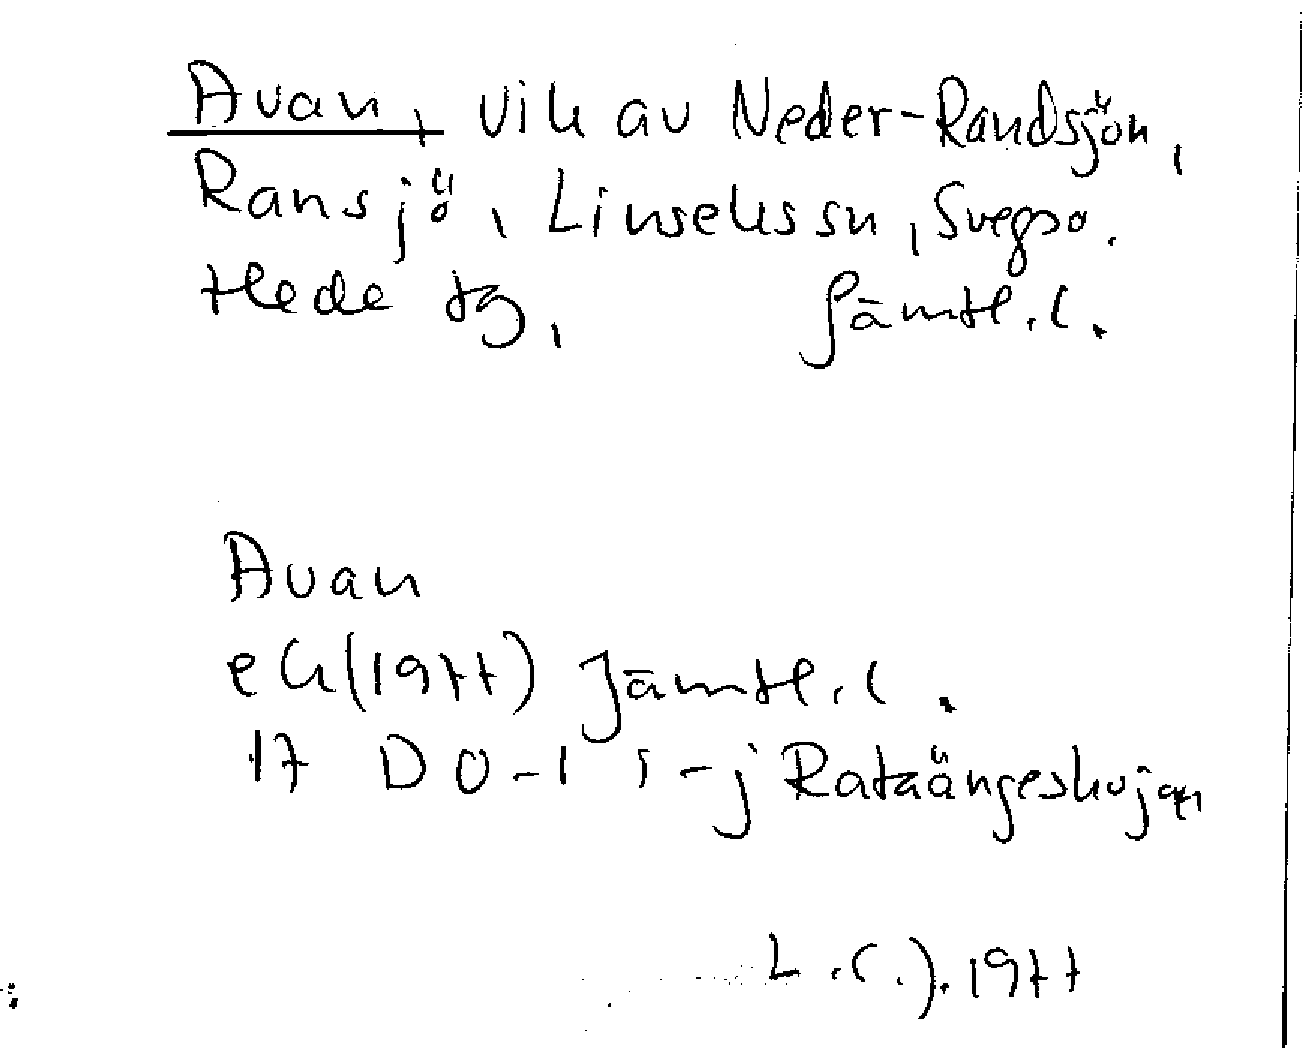 Avan, vik av Neder-Randsjön,
Ransjö, Linsells sn, Svegs po.
Hede tg, Jämtl. l.
Avan
ek (1977) Jämtl. l.
17 D 0-1 i-j Rataängeskojan
L. C. J. 1977